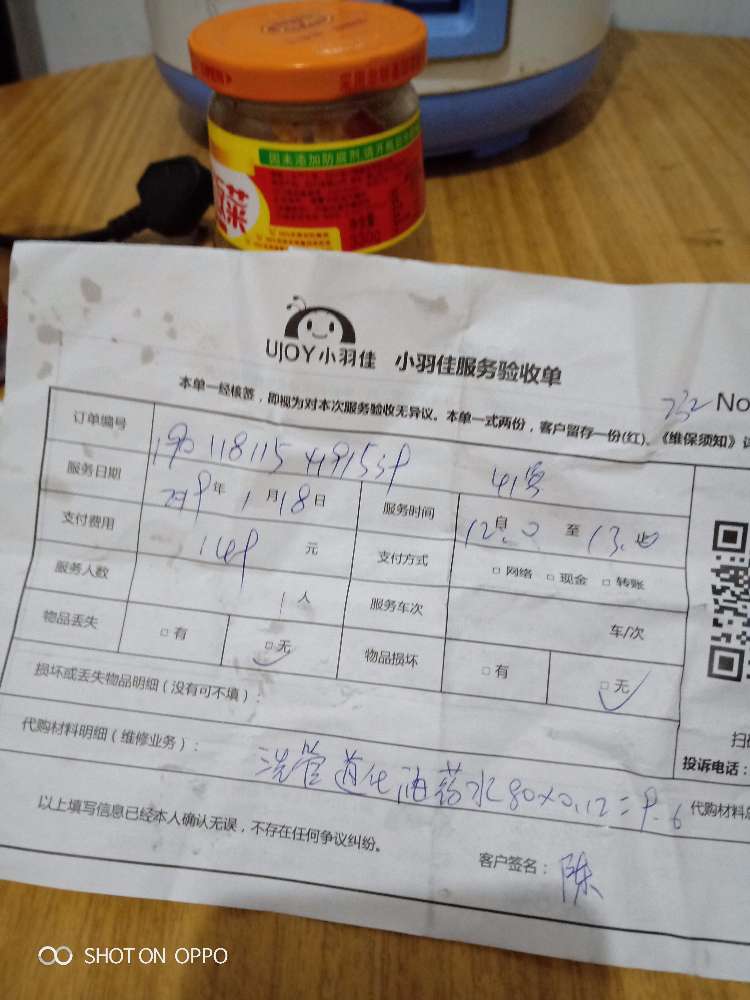 因未添加防腐剂 请开瓶后
菜
UJOY小羽佳 小羽佳服务验收单
No
本单一经核签，即视为对本次服务验收无异议。本单一式两份，客户留存一份(红)、《维保须知》
订单编号
服务日期 年 1月18日 服务时间 自 12.0 至 13.
支付费用 149 元 支付方式 □网络 □现金 □转账
服务人数 1 人 服务车次 车/次
物品丢失 □有 □无 物品损坏 □有 □无
损坏或丢失物品明细（没有可不填）：
代购材料明细（维修业务）： 洗管道化油药水80×0.12=9.6
扫
投诉电话：
代购材料
以上填写信息已经本人确认无误，不存在任何争议纠纷。
客户签名：陈
SHOT ON OPPO